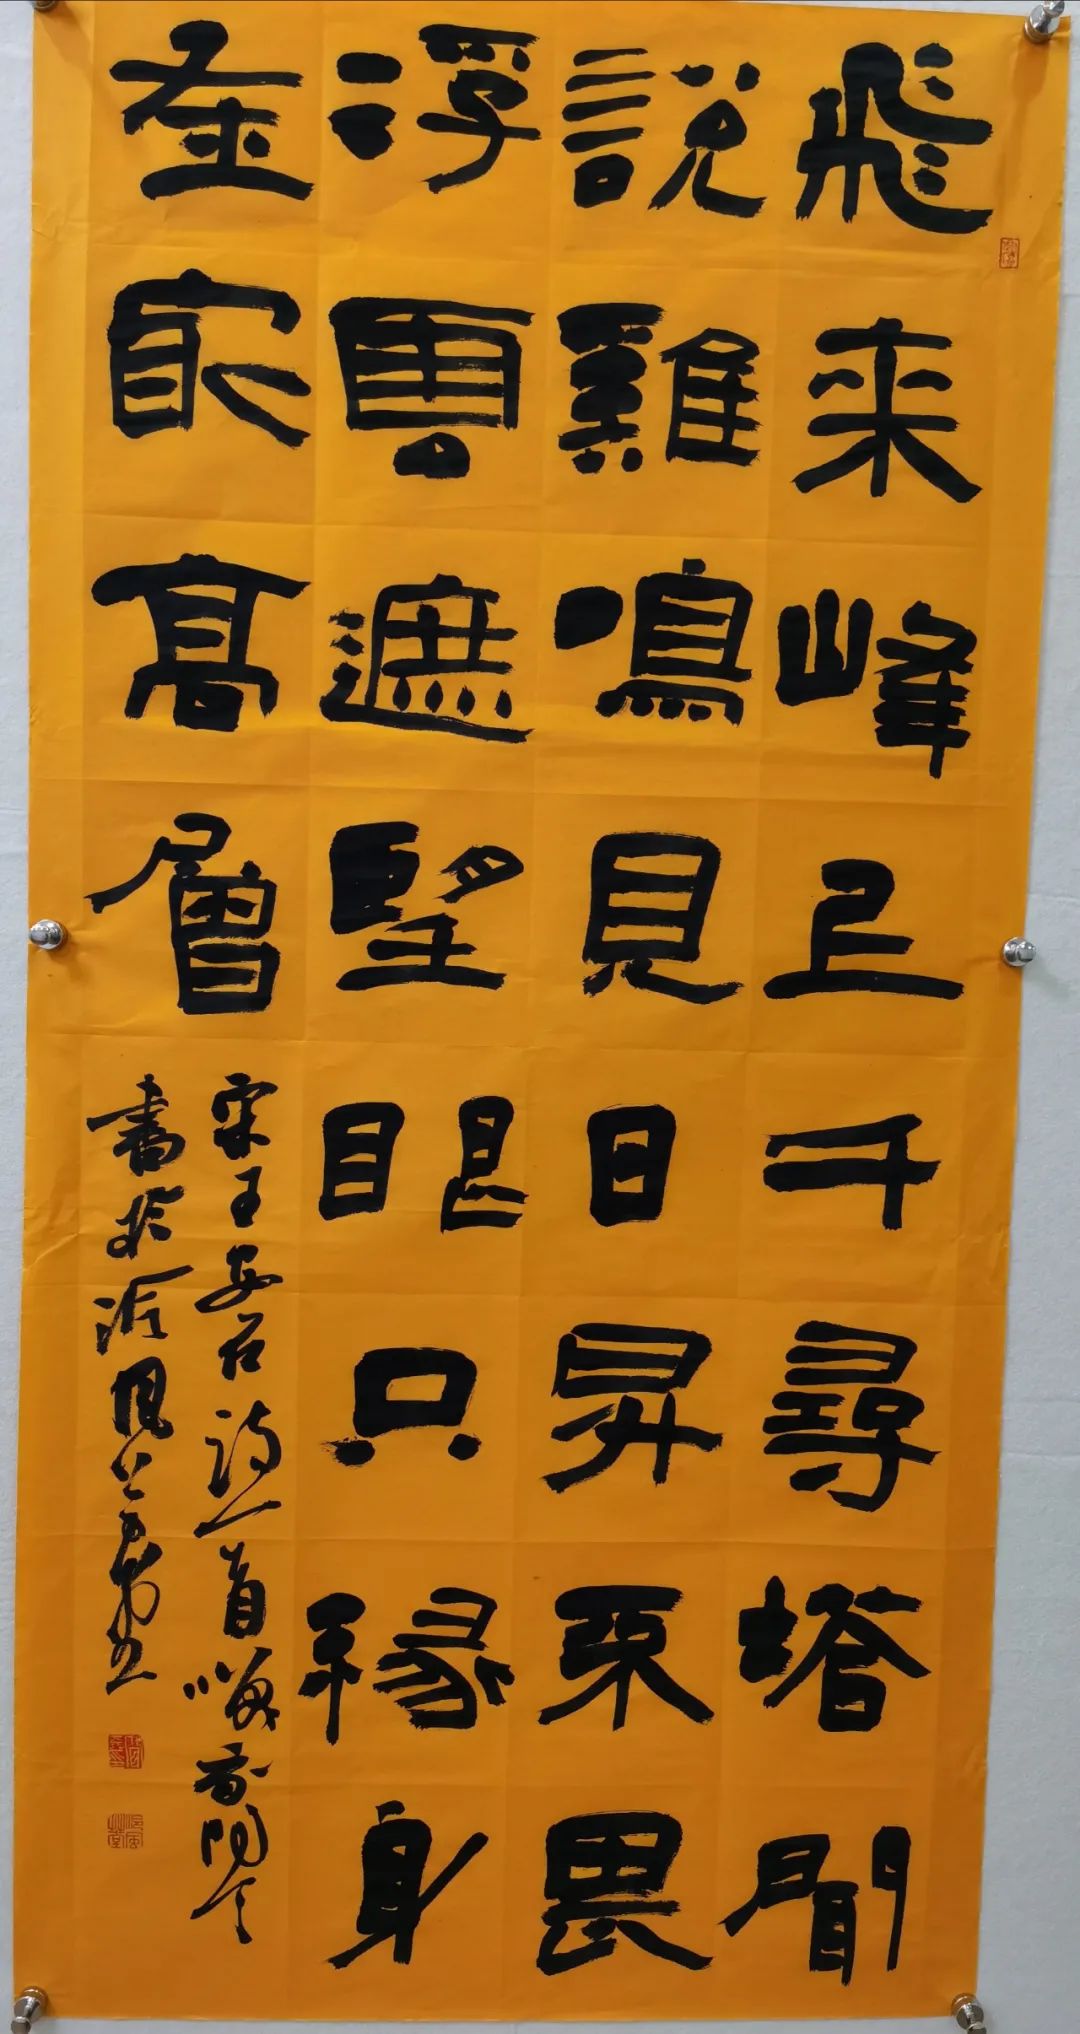 飛来峰上千尋塔聞
說雞鳴見日昇不畏
浮雲遮望眼只緣身
在最高層
宋王安石詩一首
書於